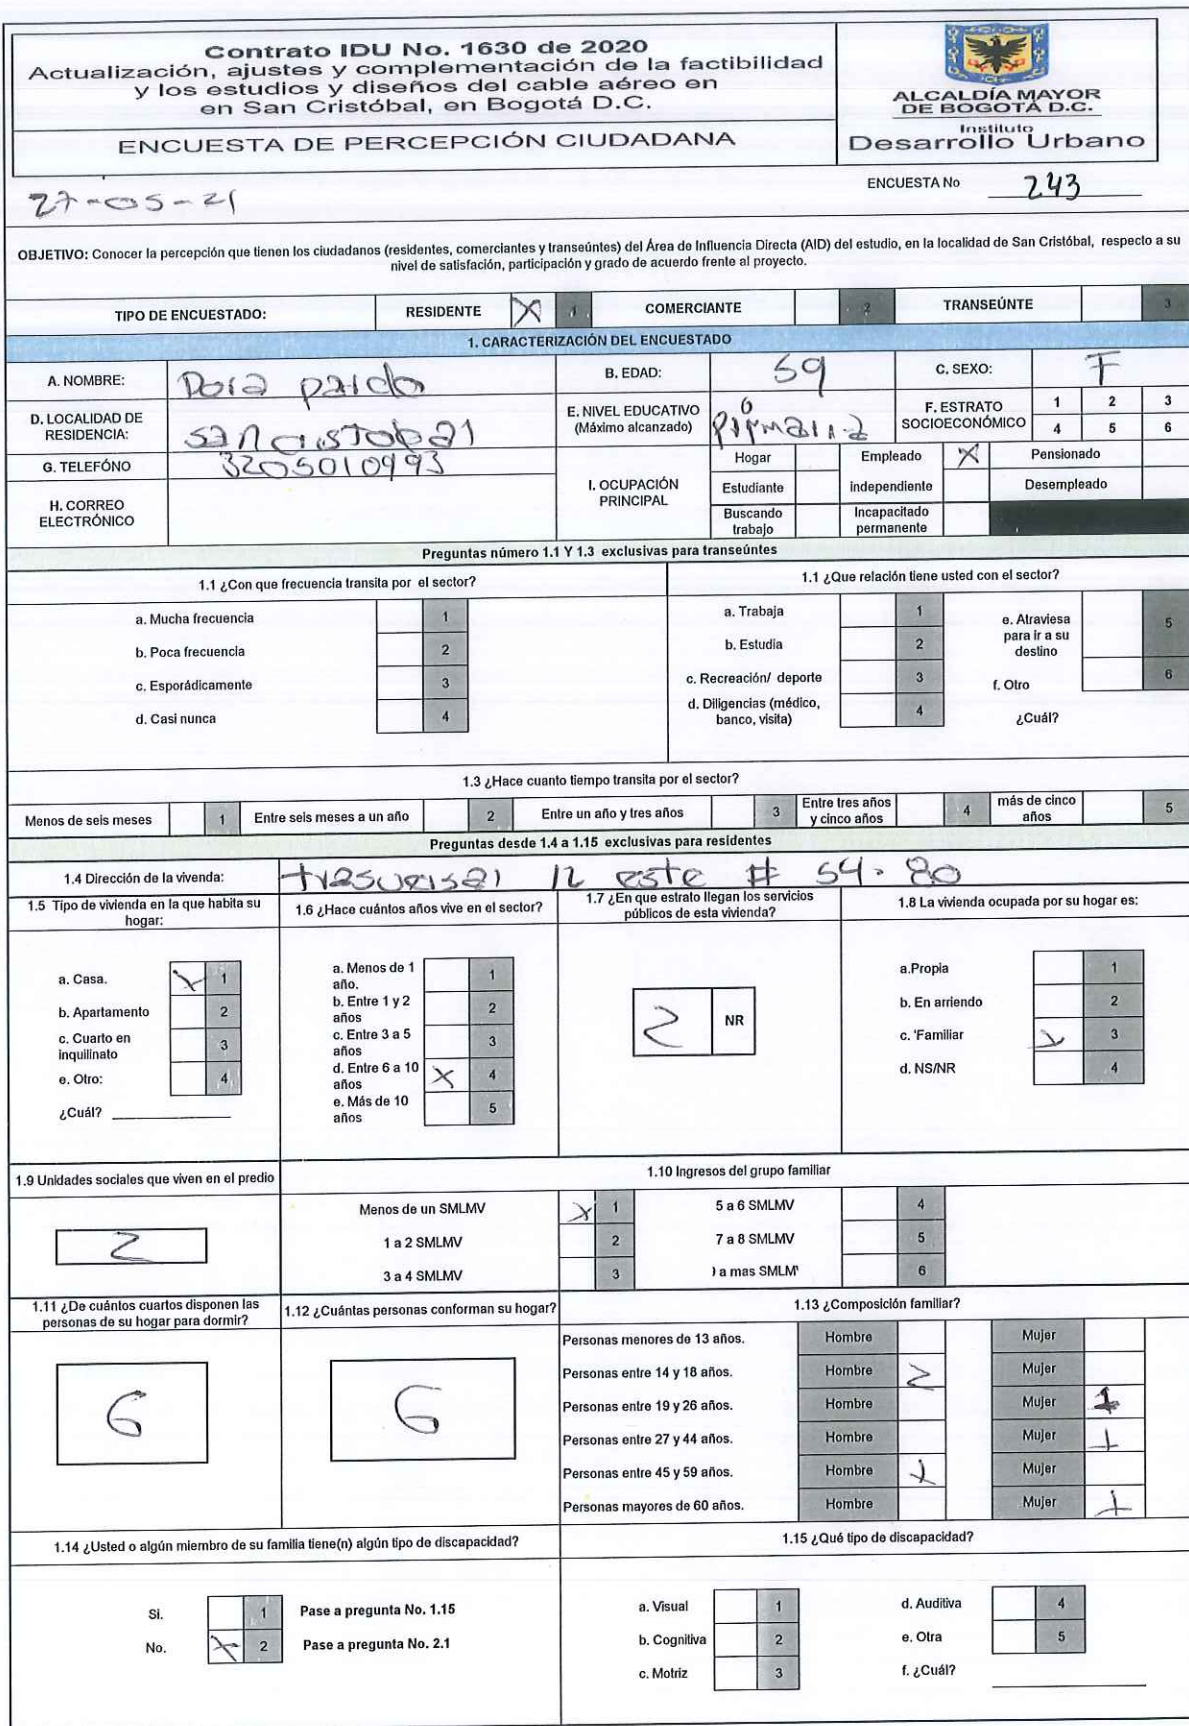 Contrato IDU No. 1630 de 2020
Actualización, ajustes y complementación de la factibilidad
y los estudios y diseños del cable aéreo en
en San Cristóbal, en Bogotá D.C.
ENCUESTA DE PERCEPCIÓN CIUDADANA
ALCALDÍA MAYOR
DE BOGOTÁ D.C.
Instituto
Desarrollo Urbano
27-05-21
ENCUESTA No 243
OBJETIVO: Conocer la percepción que tienen los ciudadanos (residentes, comerciantes y transeúntes) del Área de Influencia Directa (AID) del estudio, en la localidad de San Cristóbal, respecto a su
nivel de satisfacción, participación y grado de acuerdo frente al proyecto.
TIPO DE ENCUESTADO: RESIDENTE X 1 COMERCIANTE 2 TRANSEÚNTE 3
1. CARACTERIZACIÓN DEL ENCUESTADO
A. NOMBRE: Dora pardo B. EDAD: 59 C. SEXO: F
D. LOCALIDAD DE
RESIDENCIA: San cristobal
E. NIVEL EDUCATIVO
(Máximo alcanzado) primaria
F. ESTRATO
SOCIOECONÓMICO
1 2 3
4 5 6
G. TELEFÓNO 3205010993
H. CORREO
ELECTRÓNICO
I. OCUPACIÓN
PRINCIPAL
Hogar Empleado X Pensionado
Estudiante independiente Desempleado
Buscando
trabajo
Incapacitado
permanente
Preguntas número 1.1 Y 1.3 exclusivas para transeúntes
1.1 ¿Con que frecuencia transita por el sector?
a. Mucha frecuencia 1
b. Poca frecuencia 2
c. Esporádicamente 3
d. Casi nunca 4
1.1 ¿Que relación tiene usted con el sector?
a. Trabaja 1
b. Estudia 2
c. Recreación/ deporte 3
d. Diligencias (médico,
banco, visita) 4
e. Atraviesa
para ir a su
destino 5
f. Otro 6
¿Cuál?
1.3 ¿Hace cuanto tiempo transita por el sector?
Menos de seis meses 1 Entre seis meses a un año 2 Entre un año y tres años 3 Entre tres años
y cinco años 4 más de cinco
años 5
Preguntas desde 1.4 a 1.15 exclusivas para residentes
1.4 Dirección de la vivenda: trasversal 12 este # 54-80
1.5 Tipo de vivienda en la que habita su
hogar:
a. Casa. X 1
b. Apartamento 2
c. Cuarto en
inquilinato 3
e. Otro: 4
¿Cuál?
1.6 ¿Hace cuántos años vive en el sector?
a. Menos de 1
año. 1
b. Entre 1 y 2
años 2
c. Entre 3 a 5
años 3
d. Entre 6 a 10
años X 4
e. Más de 10
años 5
1.7 ¿En que estrato llegan los servicios
públicos de esta vivienda?
2 NR
1.8 La vivienda ocupada por su hogar es:
a.Propia 1
b. En arriendo 2
c. 'Familiar X 3
d. NS/NR 4
1.9 Unidades sociales que viven en el predio
2
1.10 Ingresos del grupo familiar
Menos de un SMLMV X 1 5 a 6 SMLMV 4
1 a 2 SMLMV 2 7 a 8 SMLMV 5
3 a 4 SMLMV 3 a mas SMLM 6
1.11 ¿De cuántos cuartos disponen las
personas de su hogar para dormir?
6
1.12 ¿Cuántas personas conforman su hogar?
6
1.13 ¿Composición familiar?
Personas menores de 13 años. Hombre Mujer
Personas entre 14 y 18 años. Hombre 2 Mujer
Personas entre 19 y 26 años. Hombre Mujer 1
Personas entre 27 y 44 años. Hombre Mujer 1
Personas entre 45 y 59 años. Hombre 1 Mujer
Personas mayores de 60 años. Hombre Mujer 1
1.14 ¿Usted o algún miembro de su familia tiene(n) algún tipo de discapacidad?
Si. 1 Pase a pregunta No. 1.15
No. X 2 Pase a pregunta No. 2.1
1.15 ¿Qué tipo de discapacidad?
a. Visual 1 d. Auditiva 4
b. Cognitiva 2 e. Otra 5
c. Motriz 3 f. ¿Cuál?